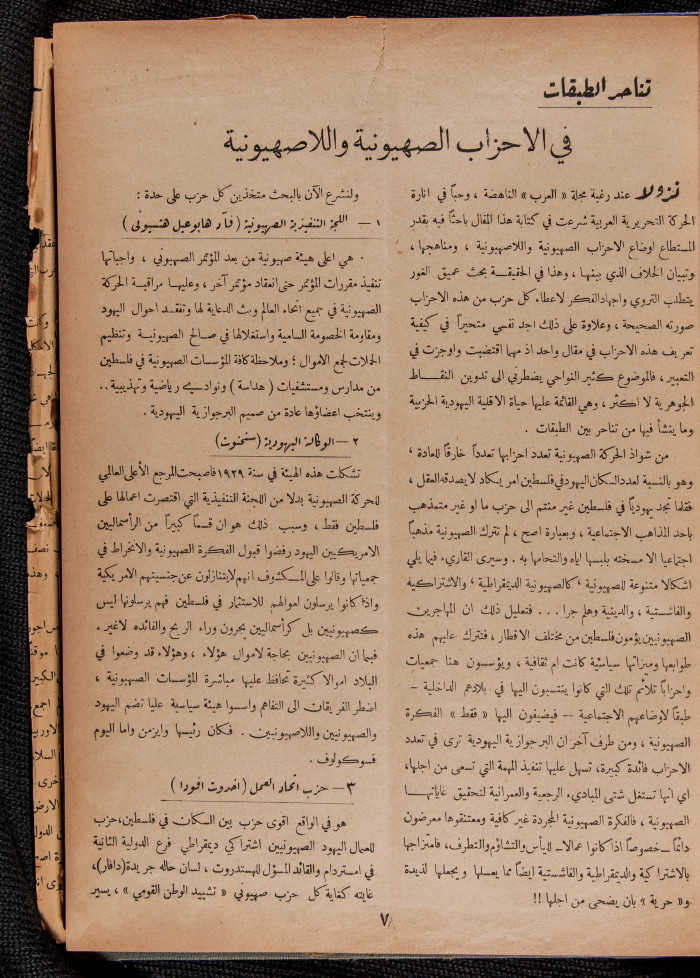 تناحر الطبقات
في الاحزاب الصهيونية واللاصهيونية
نزولا عند رغبة مجلة « العرب » الناهضة ، وحباً في انارة
الحركة التحريرية العربية شرعت في كتابة هذا المقال باحثاً فيه بقدر
المستطاع اوضاع الاحزاب الصهيونية واللاصهيونية ، ومناهجها ،
وتبيان الخلاف الذي بينها ، وهذا في الحقيقة بحث عميق الغور
يتطلب التروي واجهاد الفكر لاعطاء كل حزب من هذه الاحزاب
صورته الصحيحة ، وعلاوة على ذلك اجد نفسي متحيراً في كيفية
تعريف هذه الاحزاب في مقال واحد اذ مهما اقتضبت واوجزت في
التعبير ، فالموضوع كثير النواحي يضطرني الى تدوين النقـاط
الجوهرية لا اكثر ، وهي القائمة عليها حياة الاقلية اليهودية الحزبية
وما ينشأ فيها من تناحر بين الطبقات .
من شواذ الحركة الصهيونية تعدد احزابها تعدداً خارقاً للعادة ،
وهو بالنسبة لعدد السكان اليهود في فلسطين امر يكاد لا يصدقه العقل ،
فقلما تجد يهودياً في فلسطين غير منتم الى حزب ما او غير متمذهب
باحد المذاهب الاجتماعية ، وبعبارة اصح ، لم تترك الصهيونية مذهباً
اجتماعيا الا مسخته بلبسها اياه والتحامها به . وسيرى القاريء فيما يلي
اشكالا متنوعة للصهيونية ‘ كالصهيونية الديمقراطية ‘ والاشتراكية
والفاشستية ، والدينية وهلم جرا . . . فتعليل ذلك ان المهاجرين
الصهيونيين يؤمون فلسطين من مختلف الاقطار ، فتترك عليهم هذه
طوابعها وميزاتها سياسية كانت ام ثقافية ، ويؤسسون هنا جمعيات
واحزاباً تلائم تلك التي كانوا ينتسبون اليها في بلادهم الداخلية -
طبقاً لاوضاعهم الاجتماعية -- فيضيفون اليها « فقط » الفكرة
الصهيونية ، ومن طرف آخر ان البرجوازية اليهودية ترى في تعدد
الاحزاب فائدة كبيرة، تسهل عليها تنفيذ المهمة التي تسعى من اجلها،
اي انها تستغل شتى المباديء الرجعية والعمرانية لتحقيق غاياتهـا
الصهيونية ، فالفكرة الصهيونية المجردة غير كافية ومعتنقوها معرضون
دائمًا – خصوصاً اذا كانوا عمالا – لليأس والتشاؤم والتطرف، فامتزاجها
بالاشتراكية والديمقراطية والفاشستية ايضاً مما يعسلها ويجعلها لذيذة
و« حرية » بان يضحى من اجلها !!
ولنشرع الآن بالبحث متخذين كل حزب على حدة :
١ – اللجنة التنفيذية الصهيونية ( فآد هابوعيل هتسيوني )
هي اعلى هيئة صهيونية من بعد المؤتمر الصهيوني ، واجباتها
تنفيذ مقررات المؤتمر حتى انعقاد مؤتمر آخر ، وعليها مراقبة الحركة
الصهيونية في جميع انحاء العالم وبث الدعاية لها وتفقد احوال اليهود
ومقاومة الخصومة السامية واستغلالها في صالح الصهيونية وتنظيم
الحملات لجمع الاموال ؛ وملاحظة كافة المؤسسات الصهيونية في فلسطين
من مدارس ومستشفيات ( هداسة ) ونوادي رياضية وتهذيبية . .
وينتخب اعضاؤها عادة من صميم البرجوازية اليهودية .
٢ – الوكالة اليهودية ( سخنوت )
تشكلت هذه الهيئة في سنة ١٩٢٩ فاصبحت المرجع الأعلى العالمي
للحركة الصهيونية بدلا من اللجنة التنفيذية التي اقتصرت اعمالها على
فلسطين فقط ، وسبب ذلك هو ان قسماً كبيراً من الرأسماليين
الامريكيين اليهود رفضوا قبول الفكرة الصهيونية والانخراط في
جمعياتها وقالوا على المـكشوف انهم لا يتنازلون عن جنسيتهم الامريكية
واذا كانوا يرسلون اموالهم للاستثمار في فلسطين فهم يرسلونها ليس
كصهيونيين بل كرأسماليين يجرون وراء الربح والفائده لا غير .
فيما ان الصهيونيين بحاجة لاموال هؤلاء ، وهؤلاء قد وضعوا في
البلاد اموالا كثيرة تحافظ عليها مباشرة المؤسسات الصهيونية ،
اضطر الفريقان الى التفاهم واسسوا هيئة سياسية عليا تضم اليهود
والصهيونيين واللاصهيونيين . فكان رئيسها وايزمن واما اليوم
فسوكولوف .
٣ – حزب اتحاد العمل ( احدوت افودا )
هو في الواقع اقوى حزب بين السكان في فلسطين، حزب
للعمال اليهود الصهيونيين اشتراكي ديمقراطي فرع الدولية الثانية
في امستردام والقائد المسؤل للهستدروت ، لسان حاله جريدة (دافار)،
غايته كغاية كل حزب صهيوني « تشييد الوطن القومي » ، يسير
٧